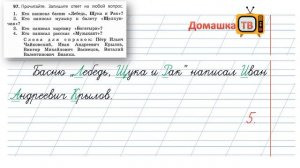 97. Прочитайте. Запишите ответ на любой вопрос.
1. Кто написал басню «Лебедь, Щука и Рак»?
2. Кто написал музыку к балету «Щелкунчик»?
3. Кто написал картину «Богатыри»?
4. Кто написал рассказ «Музыкант»?
Слова для справок: Пётр Ильич
Чайковский, Иван Андреевич Крылов,
Виктор Михайлович Васнецов, Виталий
Валентинович Бианки.
Домашка
ТВ
Басню „Лебедь, Щука и Рак" написал Иван
Андреевич Крылов.
5.